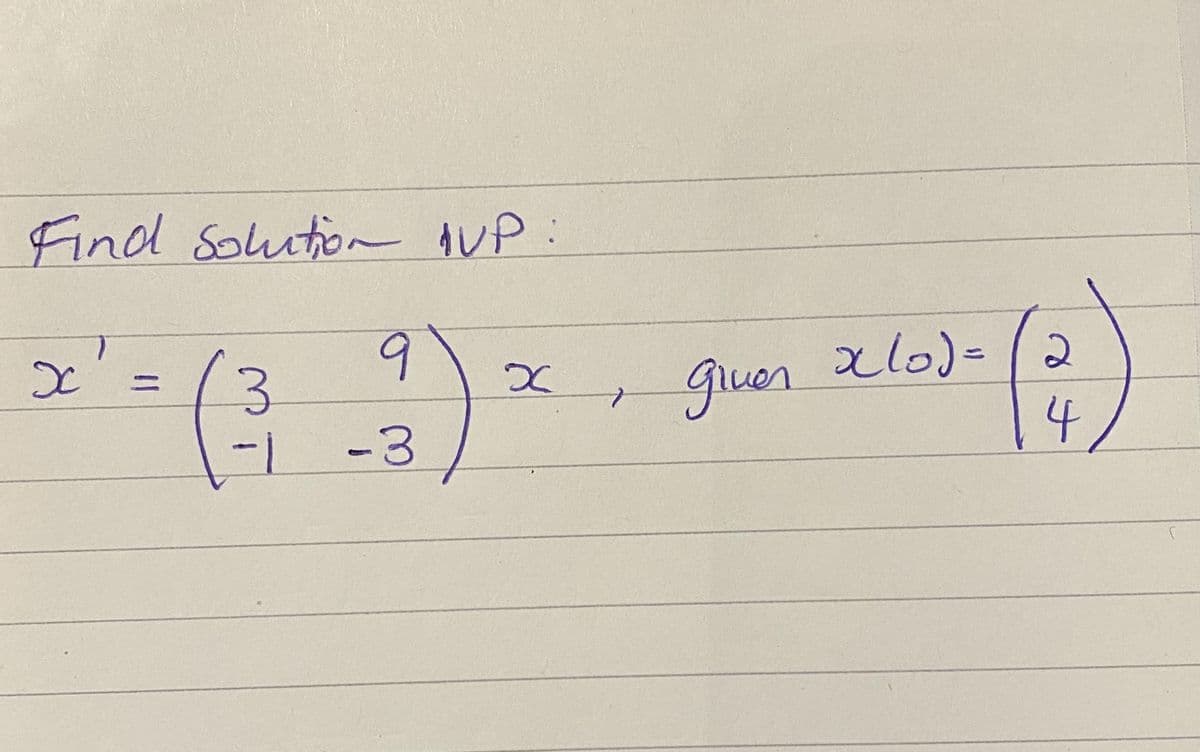 Find Solution IVP:
x' = (3 9) x , given x(0) = (2)
(-1 -3) (4)